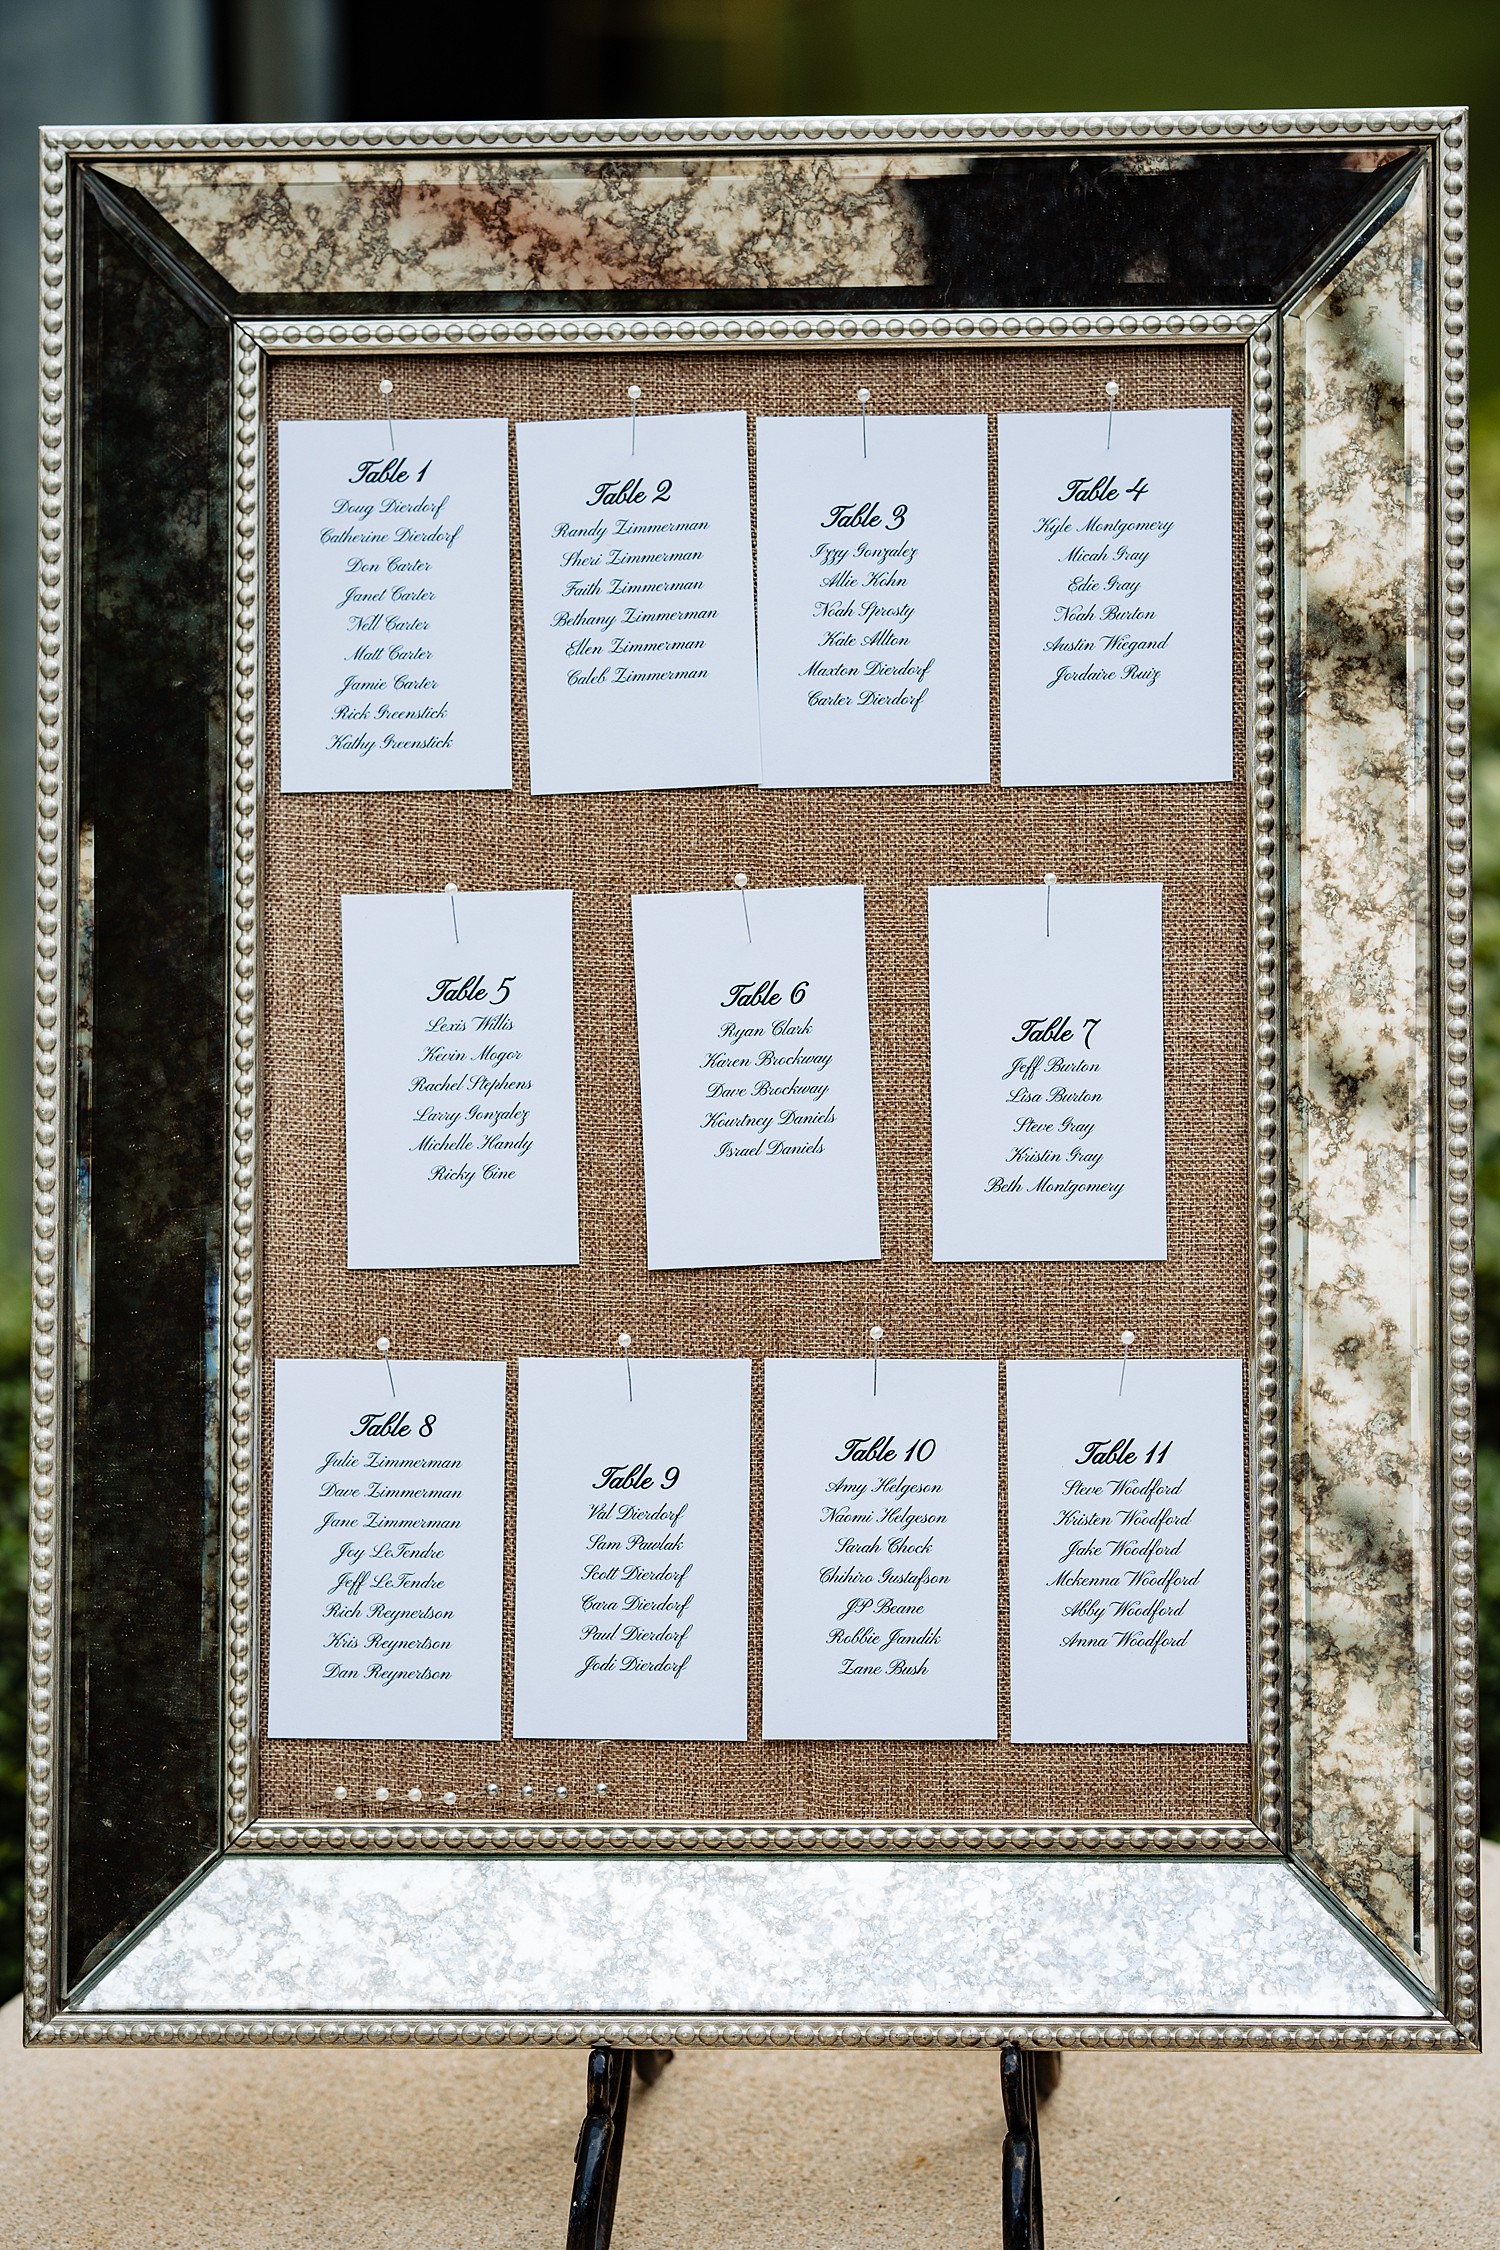 Table 1
Doug Dierdorf
Catherine Dierdorf
Don Carter
Janet Carter
Nell Carter
Matt Carter
Jamie Carter
Rick Greenstick
Kathy Greenstick
Table 2
Randy Zimmerman
Sheri Zimmerman
Faith Zimmerman
Bethany Zimmerman
Ellen Zimmerman
Caleb Zimmerman
Table 3
Izzy Gonzalez
Allie Kohn
Noah Sprosty
Kate Allton
Maxton Dierdorf
Carter Dierdorf
Table 4
Kyle Montgomery
Micah Gray
Edie Gray
Noah Burton
Austin Wiegand
Jordaire Ruiz
Table 5
Lexis Willis
Kevin Mogor
Rachel Stephens
Larry Gonzalez
Michelle Handy
Ricky Cine
Table 6
Ryan Clark
Karen Brockway
Dave Brockway
Kourtney Daniels
Israel Daniels
Table 7
Jeff Burton
Lisa Burton
Steve Gray
Kristin Gray
Beth Montgomery
Table 8
Julie Zimmerman
Dave Zimmerman
Jane Zimmerman
Joy LeTendre
Jeff LeTendre
Rich Reynertson
Kris Reynertson
Dan Reynertson
Table 9
Val Dierdorf
Sam Pawlak
Scott Dierdorf
Cara Dierdorf
Paul Dierdorf
Jodi Dierdorf
Table 10
Amy Helgeson
Naomi Helgeson
Sarah Chock
Chihiro Gustafson
JP Beane
Robbie Jandik
Zane Bush
Table 11
Steve Woodford
Kristen Woodford
Jake Woodford
Mckenna Woodford
Abby Woodford
Anna Woodford